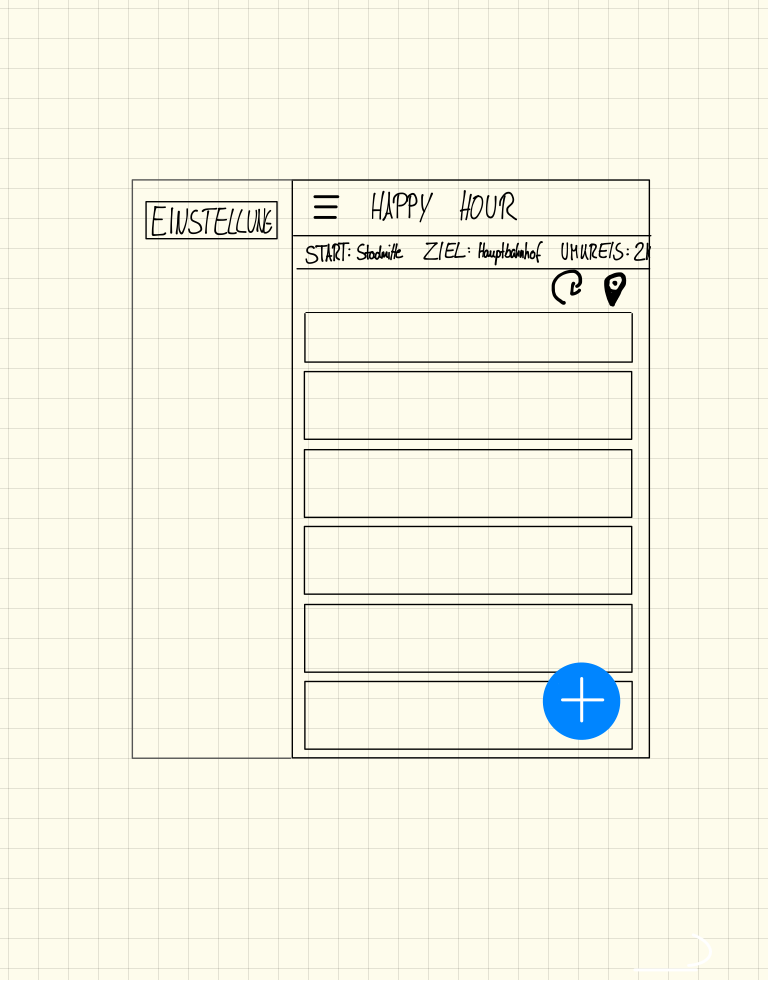 EINSTELLUNG
HAPPY HOUR
START: Stadmitte ZIEL: Hauptbahnhof UMKREIS: 2K